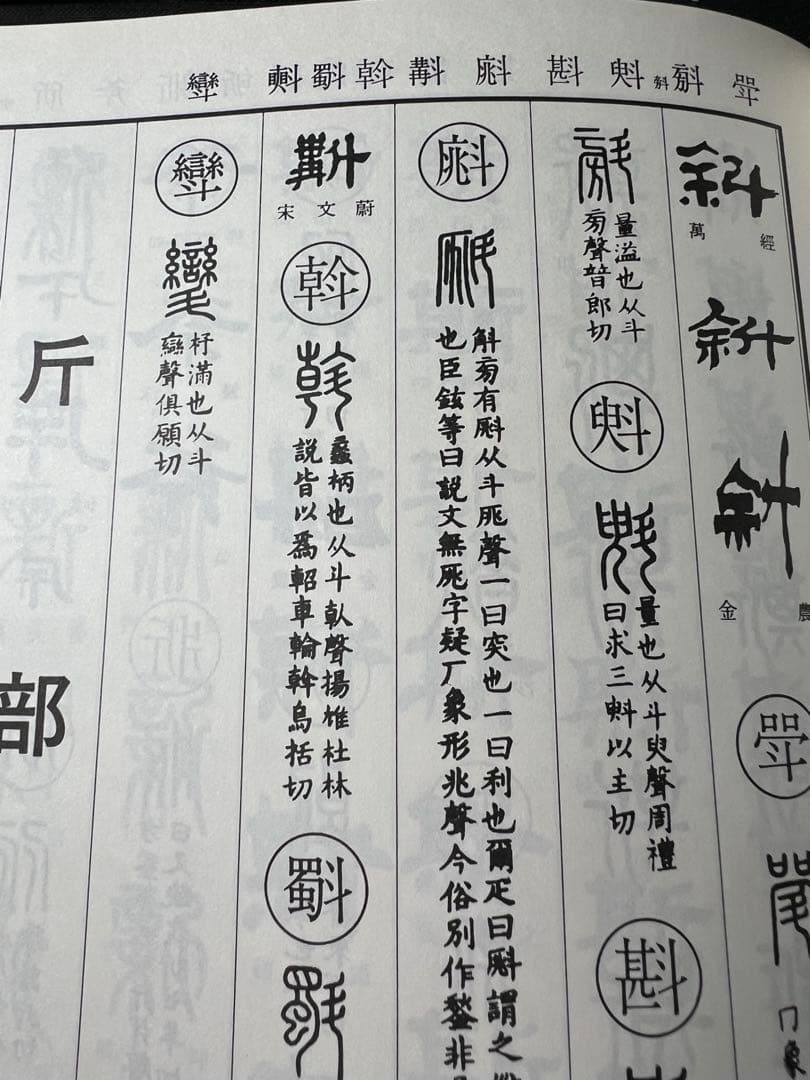 斝 㪵 斞 斟 𣂁 斠 斡 斣 㪻
斜
經萬
斜
斜
農金
斝
斝
㪵
量溢也从斗
㫄聲普郎切
斞
斞
量也从斗臾聲周禮
曰求三斞以主切
斟
𣂁
𣂁
斛㫄有𣂁从斗𠩓聲一曰突也一曰利也爾疋曰𣂁謂之
也臣鉉等曰説文無𠩓字疑厂象形兆聲今俗別作鍫非
斠
宋文蔚
斡
斡
蠡柄也从斗倝聲揚雄杜林
説皆以爲軺車輪斡烏括切
斣
斣
㪻
㪻
杼滿也从斗
䜌聲俱願切
斤部